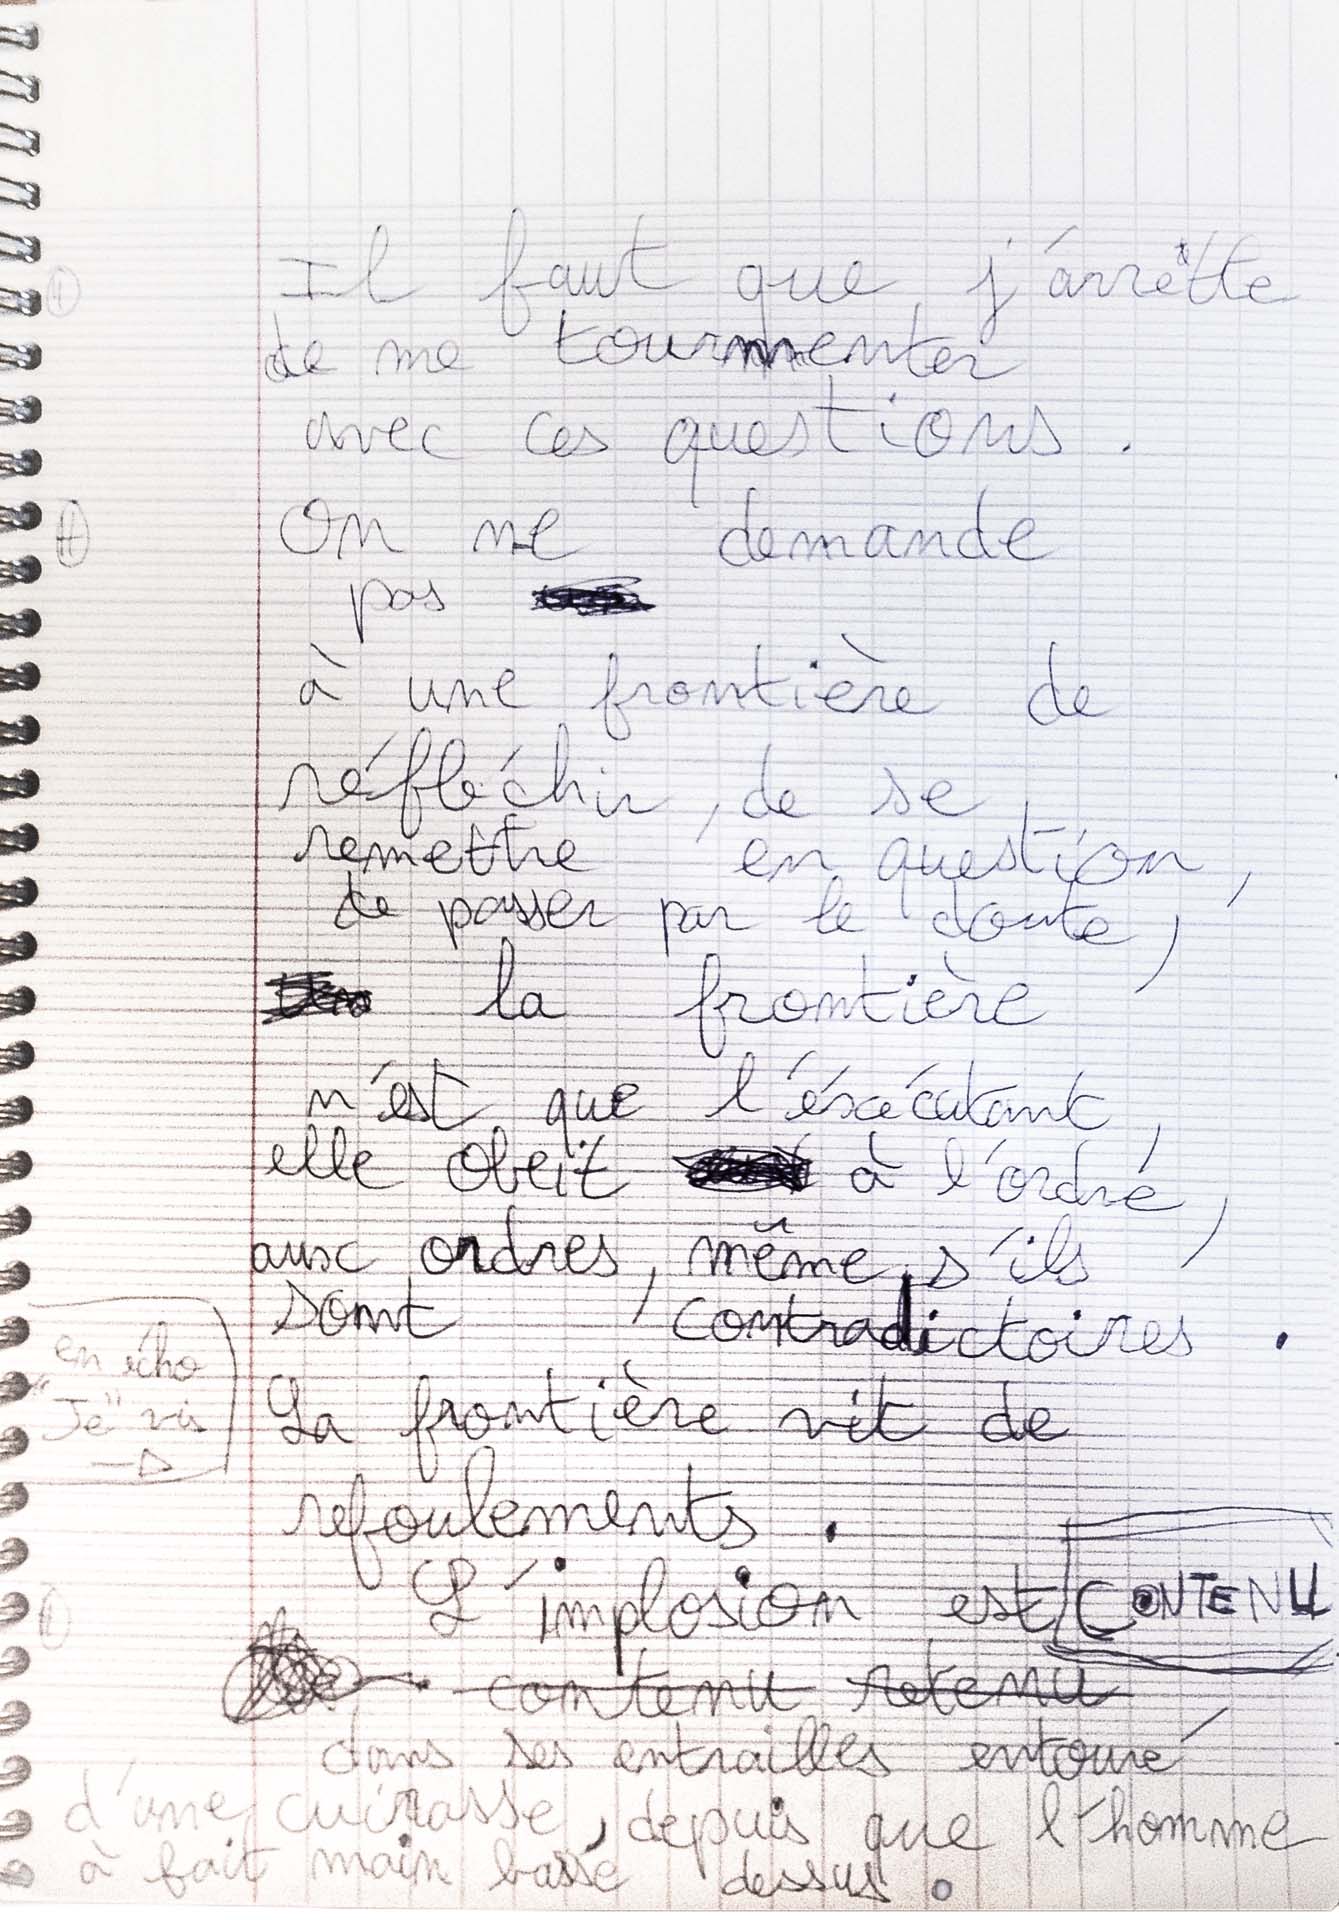 Il faut que j'arrêtte
de me tourmenter
avec ces questions.
On ne demande
pas
à une frontière de
réfléchir, de se
remettre en question,
de passer par le doute,
la frontière
n'est que l'éxécutant,
elle obeït à l'ordre,
aux ordres, même s'ils
sont contradictoires.
en écho
"Je" vis
La frontière vit de
refoulements.
L'implosion est CONTENU
contenu retenu
dans ses entrailles entouré
d'une cuirasse, depuis que l'homme
à fait main basse dessus.